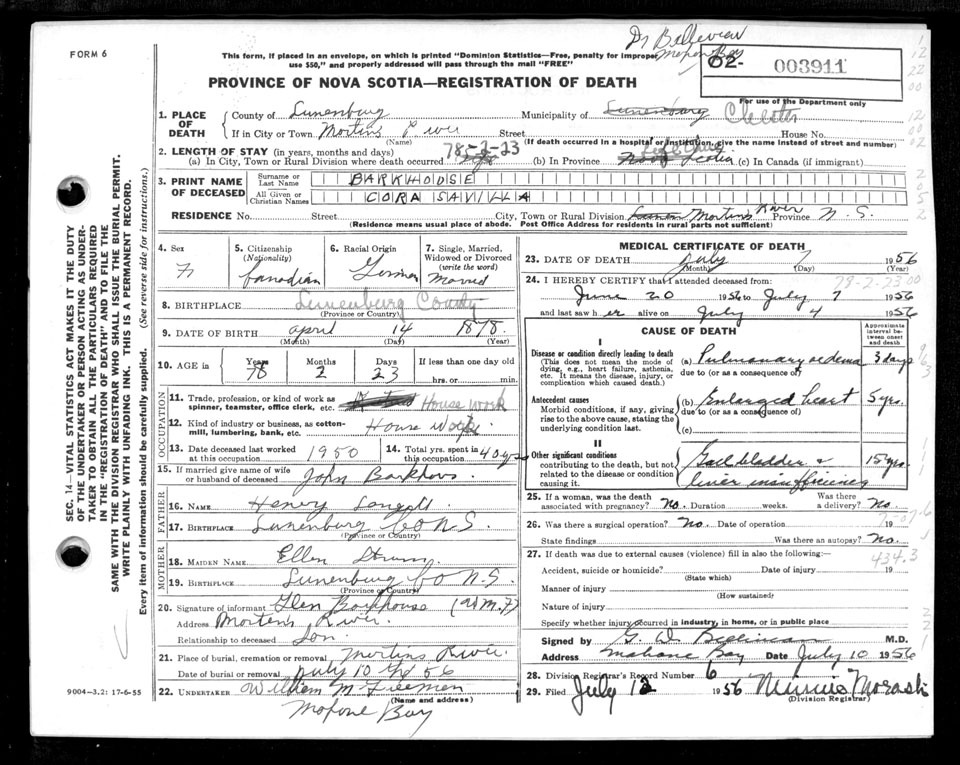 FORM 6
Dr Bellevieu
Mahon Bay
This form, if placed in an envelope, on which is printed "Dominion Statistics—Free, penalty for improper
use $50," and properly addressed will pass through the mail "FREE"
02- 003911
PROVINCE OF NOVA SCOTIA—REGISTRATION OF DEATH
For use of the Department only
1. PLACE OF DEATH
County of Lunenburg Municipality of Lunenburg Chester
If in City or Town Martins River Street House No.
(Name) (If death occurred in a hospital or institution, give the name instead of street and number)
2. LENGTH OF STAY (in years, months and days) 78-2-23
(a) In City, Town or Rural Division where death occurred (b) In Province Nova Scotia (c) In Canada (if immigrant)
3. PRINT NAME OF DECEASED
Surname or Last Name BARKHOUSE
All Given or Christian Names CORA SAVILLA
RESIDENCE No. Street City, Town or Rural Division Martins River Province N.S.
(Residence means usual place of abode. Post Office Address for residents in rural parts not sufficient)
4. Sex F
5. Citizenship (Nationality) Canadian
6. Racial Origin German
7. Single, Married, Widowed or Divorced (write the word) Married
8. BIRTHPLACE Lunenburg County
(Province or Country)
9. DATE OF BIRTH April 14 1878
(Month) (Day) (Year)
10. AGE in Years 78 Months 2 Days 23 If less than one day old
hrs. or min.
OCCUPATION
11. Trade, profession, or kind of work as spinner, teamster, office clerk, etc. House Work
12. Kind of industry or business, as cotton-mill, lumbering, bank, etc. House Work
13. Date deceased last worked at this occupation 1950
14. Total yrs. spent in this occupation 40 yrs
15. If married give name of wife or husband of deceased John Barkhous
FATHER
16. NAME Henry Langell
17. BIRTHPLACE Lunenburg CO N S.
(Province or Country)
MOTHER
18. MAIDEN NAME Ellen Strum
19. BIRTHPLACE Lunenburg CO N-S.
(Province or Country)
20. Signature of informant Glen Barkhouse
Address Mortens River
Relationship to deceased Son
21. Place of burial, cremation or removal Mertins River
Date of burial or removal July 10 th 56
22. UNDERTAKER William M Freeman
(Name and address)
Mahone Bay
MEDICAL CERTIFICATE OF DEATH
23. DATE OF DEATH July 7 1956
(Month) (Day) (Year)
78-2-23 00
24. I HEREBY CERTIFY that I attended deceased from:
June 20 1956 to July 7 1956
and last saw her alive on July 4 1956
CAUSE OF DEATH
Approximate interval between onset and death
I
Disease or condition directly leading to death (a) Pulmonary oedema 3 days
(This does not mean the mode of dying, e.g., heart failure, asthenia, etc. It means the disease, injury, or complication which caused death.)
due to (or as a consequence of)
Antecedent causes (b) Enlarged heart 5 yrs.
Morbid conditions, if any, giving rise to the above cause, stating the underlying condition last.
due to (or as a consequence of)
(c)
II
Other significant conditions Gall bladder & 15 yrs.
contributing to the death, but not related to the disease or condition causing it.
liver insufficiency
25. If a woman, was the death associated with pregnancy? No. Duration weeks. Was there a delivery? No.
26. Was there a surgical operation? No. Date of operation 19
State findings Was there an autopsy? No.
27. If death was due to external causes (violence) fill in also the following:— 434.3
Accident, suicide or homicide? Date of injury 19
(State which)
Manner of injury
(How sustained)
Nature of injury
Specify whether injury occurred in industry, in home, or in public place
Signed by M.D.
Address Mahone Bay Date July 10 1956
28. Division Registrar's Record Number 6
29. Filed July 12 1956 Minnie Morash
(Division Registrar)
SEC. 14—VITAL STATISTICS ACT MAKES IT THE DUTY
OF THE UNDERTAKER OR PERSON ACTING AS UNDER-
TAKER TO OBTAIN ALL THE PARTICULARS REQUIRED
IN THE "REGISTRATION OF DEATH" AND TO FILE THE
SAME WITH THE DIVISION REGISTRAR WHO SHALL ISSUE THE BURIAL PERMIT.
WRITE PLAINLY WITH UNFADING INK. THIS IS A PERMANENT RECORD.
Every item of information should be carefully supplied. (See reverse side for instructions.)
9004—3.2: 17-6-55